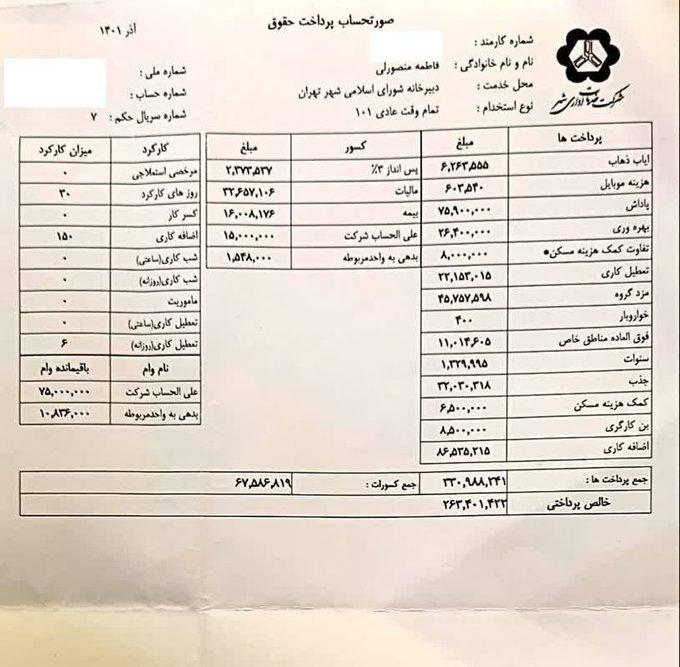 صورتحساب پرداخت حقوق
آذر ۱۴۰۱
شماره کارمند :
نام و نام خانوادگی : فاطمه منصورلی
محل خدمت : دبیرخانه شورای اسلامی شهر تهران
نوع استخدام : تمام وقت عادی ۱۰۱
شماره ملی :
شماره حساب :
شماره سریال حکم : ۷
شرکت شهر
پرداخت ها مبلغ
ایاب ذهاب ۶,۲۶۳,۵۵۵
هزینه موبایل ۶۰۳,۵۴۰
پاداش ۷۵,۹۰۰,۰۰۰
بهره وری ۲۶,۴۰۰,۰۰۰
تفاوت کمک هزینه مسکن* ۸,۰۰۰,۰۰۰
تعطیل کاری ۲۲,۱۵۳,۰۱۵
مزد گروه ۴۵,۷۵۷,۵۹۸
خواروبار ۴۰۰
فوق العاده مناطق خاص ۱۱,۰۱۴,۶۰۵
سنوات ۱,۳۲۹,۹۹۵
جذب ۳۲,۰۳۰,۳۱۸
کمک هزینه مسکن ۶,۵۰۰,۰۰۰
بن کارگری ۸,۵۰۰,۰۰۰
اضافه کاری ۸۶,۵۳۵,۲۱۵
کسور مبلغ
پس انداز ۳% ۲,۳۷۳,۵۳۷
مالیات ۳۲,۶۵۷,۱۰۶
بیمه ۱۶,۰۰۸,۱۷۶
علی الحساب شرکت ۱۵,۰۰۰,۰۰۰
بدهی به واحدمربوطه ۱,۵۴۸,۰۰۰
کارکرد میزان کارکرد
مرخصی استعلاجی ۰
روز های کارکرد ۳۰
کسر کار ۰
اضافه کاری ۱۵۰
شب کاری(ساعتی) ۰
شب کاری(روزانه) ۰
ماموریت ۰
تعطیل کاری(ساعتی) ۰
تعطیل کاری(روزانه) ۶
نام وام باقیمانده وام
علی الحساب شرکت ۷۵,۰۰۰,۰۰۰
بدهی به واحدمربوطه ۱۰,۸۳۶,۰۰۰
جمع پرداخت ها : ۳۳۰,۹۸۸,۲۴۱ جمع کسورات : ۶۷,۵۸۶,۸۱۹
خالص پرداختی ۲۶۳,۴۰۱,۴۲۲